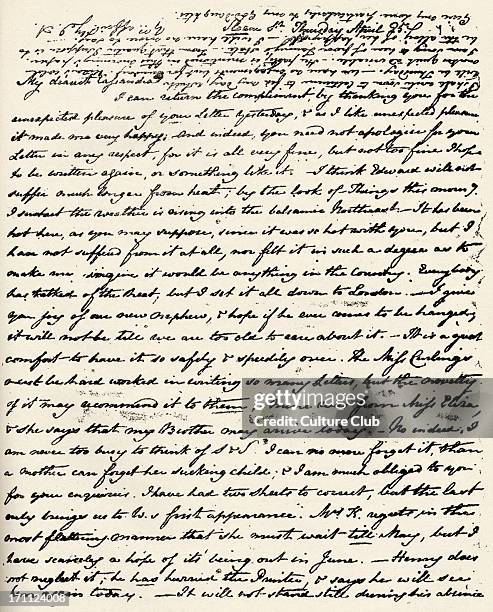 Sloane St. Thursday April 25
My dearest Cassandra
I can return the compliment by thanking you for the
unexpected pleasure of your Letter yesterday, & as I like unexpected pleasure,
it made me very happy; And indeed, you need not apologise for your
Letter in any respect, for it is all very fine, but not too fine I hope
to be written again, or something like it. I think Edward will not
suffer much longer from heat; by the look of Things this morng
I suspect the weather is rising into the balsamic Northeast. It has been
hot here, as you may suppose, since it was so hot with you, but I
have not suffered from it at all, nor felt it in such a degree as to
make me imagine it would be anything in the Country. Everybody
has talked of the heat, but I set it all down to London. — I give
you joy of our new nephew, & hope if he ever comes to be hanged,
it will not be till we are too old to care about it. — It is a great
comfort to have it so safely & speedily over. The Miss Curlings
must be hard worked in writing so many Letters, but the novelty
of it may recommend it to them; from Miss Eliza,
& she says that my Brother may arrive today. — No indeed, I
am never too busy to think of S & S. I can no more forget it, than
a mother can forget her sucking child; & I am much obliged to you
for your enquiries. I have had two sheets to correct, but the last
only brings us to W.s first appearance. Mrs. K. regrets in the
most flattering manner that she must wait till May, but I
have scarcely a hope of its being out in June. — Henry does
not neglect it; he has hurried the Printer, & says he will see
today. — It will not stand still during his absence
gettyimages
Credit: Culture Club
171124008